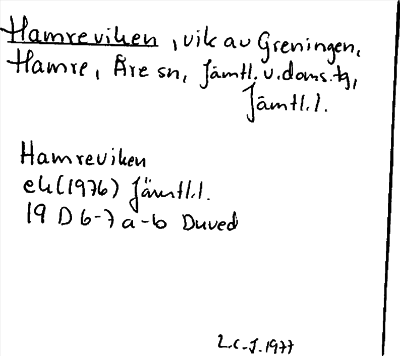 Hamreviken, vik av Greningen,
Hamre, Åre sn, Jämtl. v. doms. tg,
Jämtl. l.
Hamreviken
ek (1976) Jämtl. l.
19 D 6-7 a-b Duved
L.C-J. 1977